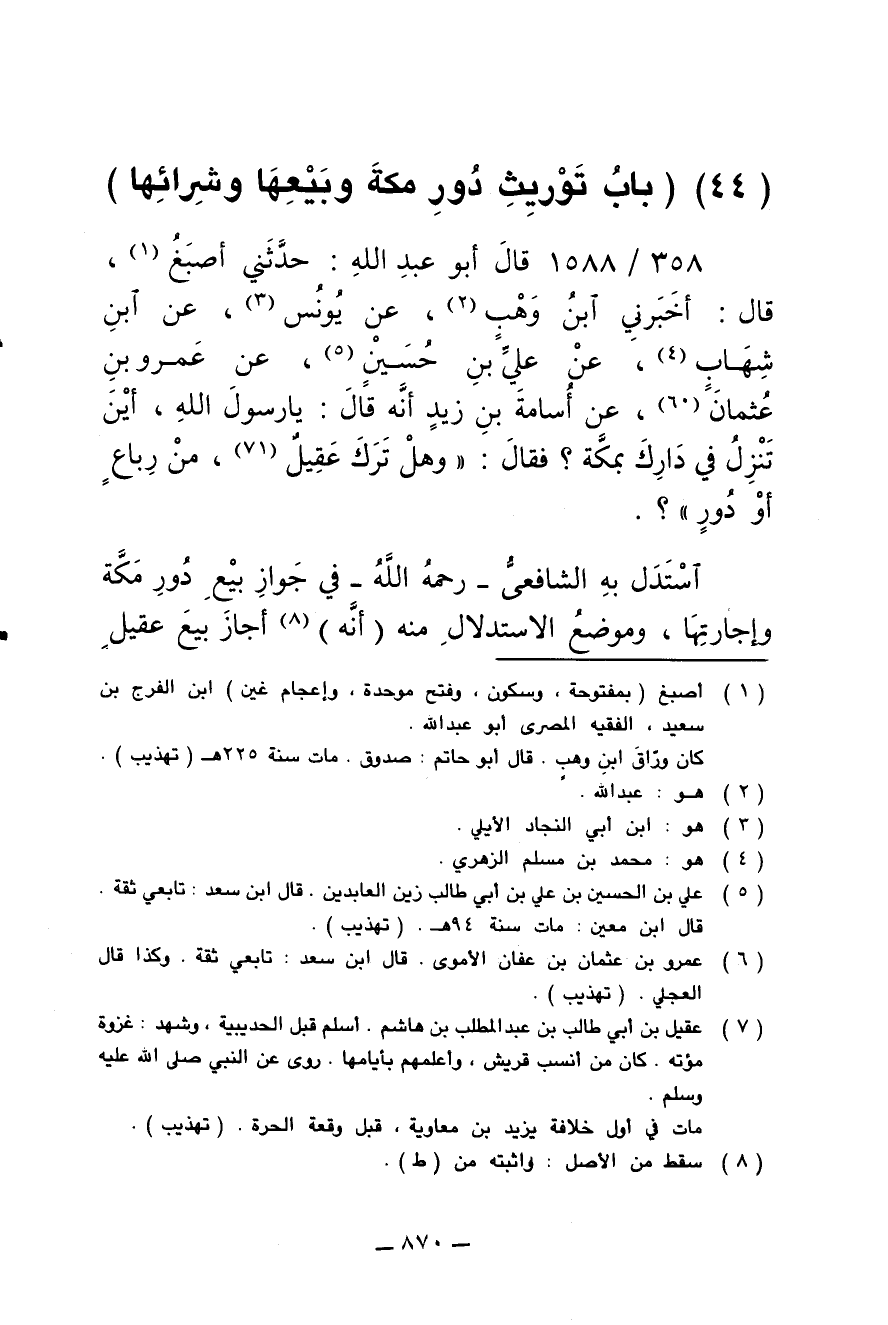 ( ٤٤ ) ( بابُ تَوْرِيثِ دُورِ مكةَ وبَيْعِهَا وشرائِها )
٣٥٨ / ١٥٨٨ قالَ أبو عبدِ اللهِ : حدَّثَني أصبَغُ (١) ،
قال : أخَبَرني ٱبنُ وَهْبٍ (٢) ، عن يُونُس (٣) ، عن ٱبنِ
شِهَابٍ (٤) ، عنْ عليِّ بنِ حُسَيْنٍ (٥) ، عن عَمرو بنِ
عُثمانَ (٦٠) ، عن أُسامةَ بنِ زيدٍ أنَّه قالَ : يارسولَ اللهِ ، أيْنَ
تَنْزِلُ في دَارِكَ بمكَّة ؟ فقالَ : « وهلْ تَرَكَ عَقِيلٌ (٧١) ، منْ رِباعٍ
أوْ دُورٍ » ؟ .
ٱسْتَدَل بهِ الشافعىُّ ـ رحمهُ اللَّهُ ـ في جَوازِ بيْعِ دُورِ مَكَّة
وإجارتِهَا ، وموضعُ الاستدلالِ منه ( أنَّه ) (٨) أجازَ بيعَ عقيلٍ
( ١ ) أصبغ ( بمفتوحة ، وسكون ، وفتح موحدة ، وإعجام غين ) ابن الفرج بن
سعيد ، الفقيه المصرى أبو عبدالله .
كان ورّاقَ ابنِ وهبٍ . قال أبو حاتم : صدوق . مات سنة ٢٢٥هـ ( تهذيب ) .
( ٢ ) هـو : عبدالله .
( ٣ ) هو : ابن أبي النجاد الأيلي .
( ٤ ) هو : محمد بن مسلم الزهري .
( ٥ ) علي بن الحسين بن علي بن أبي طالب زين العابدين . قال ابن سعد : تابعي ثقة .
قال ابن معين : مات سنة ٩٤هـ . ( تهذيب ) .
( ٦ ) عمرو بن عثمان بن عفان الأموى . قال ابن سعد : تابعي ثقة . وكذا قال
العجلي . ( تهذيب ) .
( ٧ ) عقيل بن أبي طالب بن عبدالمطلب بن هاشم . أسلم قبل الحديبية ، وشهد : غزوة
مؤته . كان من أنسب قريش ، وأعلمهم بأيامها . روى عن النبي صلى الله عليه
وسلم .
مات في أول خلافة يزيد بن معاوية ، قبل وقعة الحرة . ( تهذيب ) .
( ٨ ) سقط من الأصل : واثبته من ( ط ) .
ـ ٨٧٠ ـ